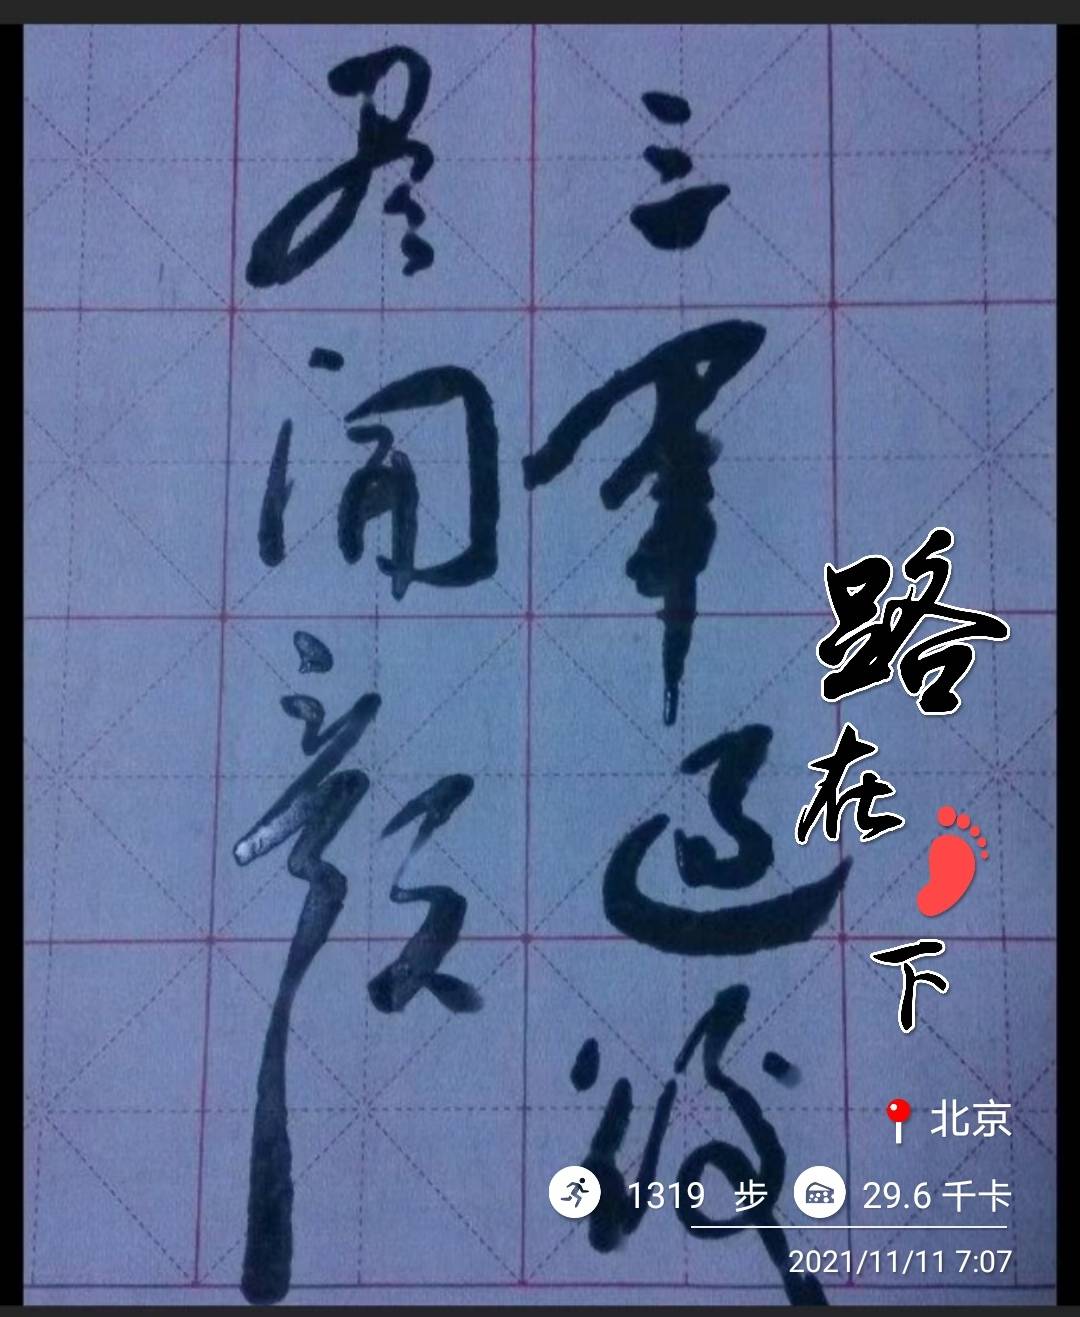 三军过后
尽开颜
路
在
下
北京
1319 步 29.6 千卡
2021/11/11 7:07